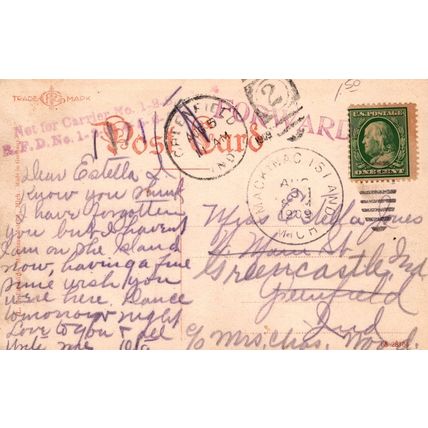 TRADE MARK
1.50
Not for Carrier No. 1-2-
R.F.D. No. 1-
FORWARD
Post Card
GREENFIELD
IND.
1909
2
U.S. POSTAGE
ONE CENT
MACKINAC ISLAND
AUG
1909
MICH
Dear Estella
know you must
have forgotten
you but I havent
I am on the Island
now, having a fine
time wish you
were here. Dance
tomorrow night
Love to you & all
Write me
Miss Estella Jones
Main St
Greencastle Ind
Greenfield
Ind
c/o Mrs. Chas. Wood